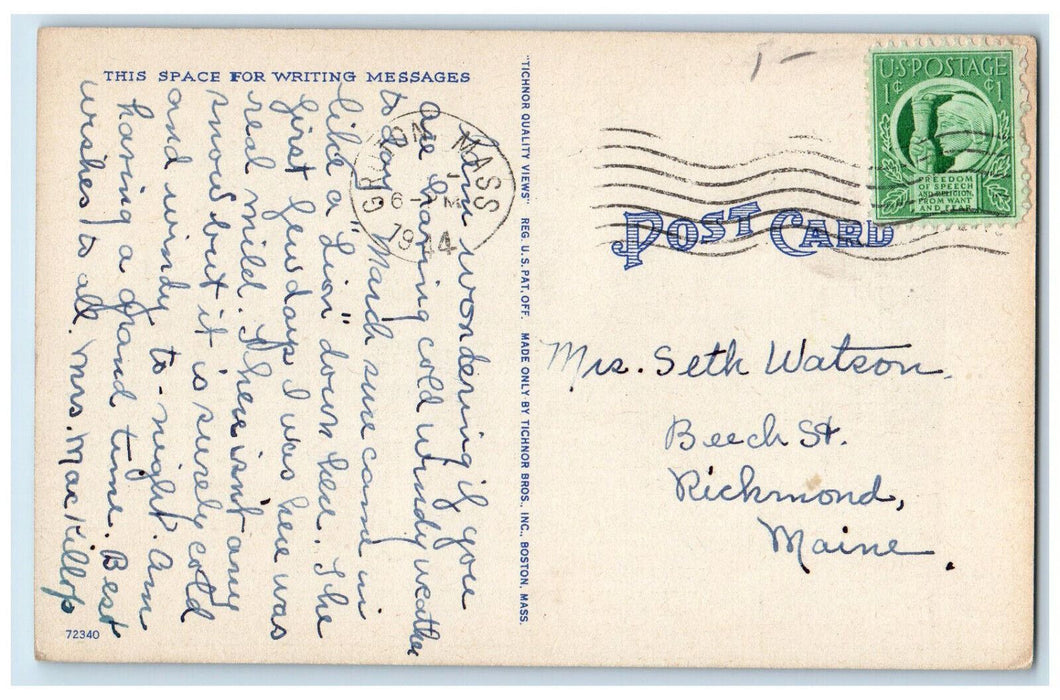 THIS SPACE FOR WRITING MESSAGES
Am wondering if you
are having cold windy weather
to-day. March sure came in
like a "Lion" down here. The
first few days I was here was
real mild. There isn't any
snow but it is surely cold
and windy to-night. Am
having a grand time. Best
wishes to all. Mrs. MacKillop
72340
"TICHNOR QUALITY VIEWS" REG. U.S. PAT. OFF. MADE ONLY BY TICHNOR BROS., INC., BOSTON, MASS.
MASS
1
6-PM
1944
U.S. POSTAGE
1¢ ¢1
FREEDOM
OF SPEECH
AND RELIGION,
FROM WANT
AND FEAR
POST CARD
Mrs. Seth Watson,
Beech St.
Richmond,
Maine.